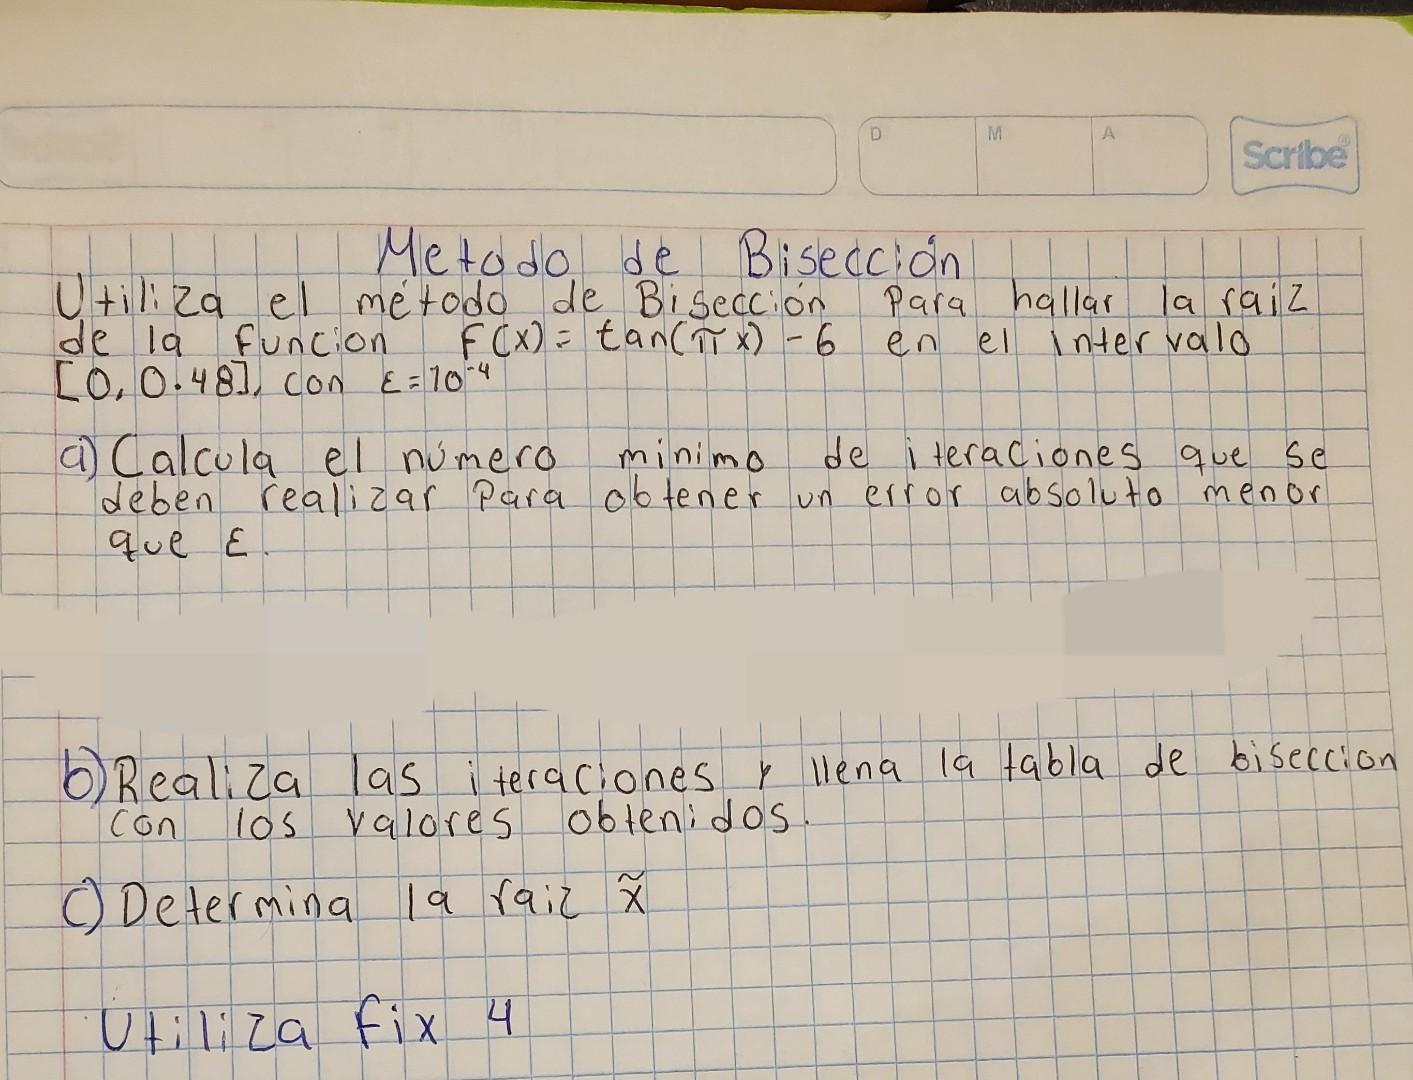 D M A
Scribe
Metodo de Bisección
Utiliza el método de Bisección Para hallar la raiz
de la funcion f(x) = tan(πx) - 6 en el intervalo
[0, 0.48], con ε=10⁻⁴
a) Calcula el número minimo de iteraciones que se
deben realizar Para obtener un error absoluto menor
que ε.
b) Realiza las iteraciones y llena la tabla de biseccion
con los valores obtenidos.
c) Determina la raiz x̃
Utiliza fix 4